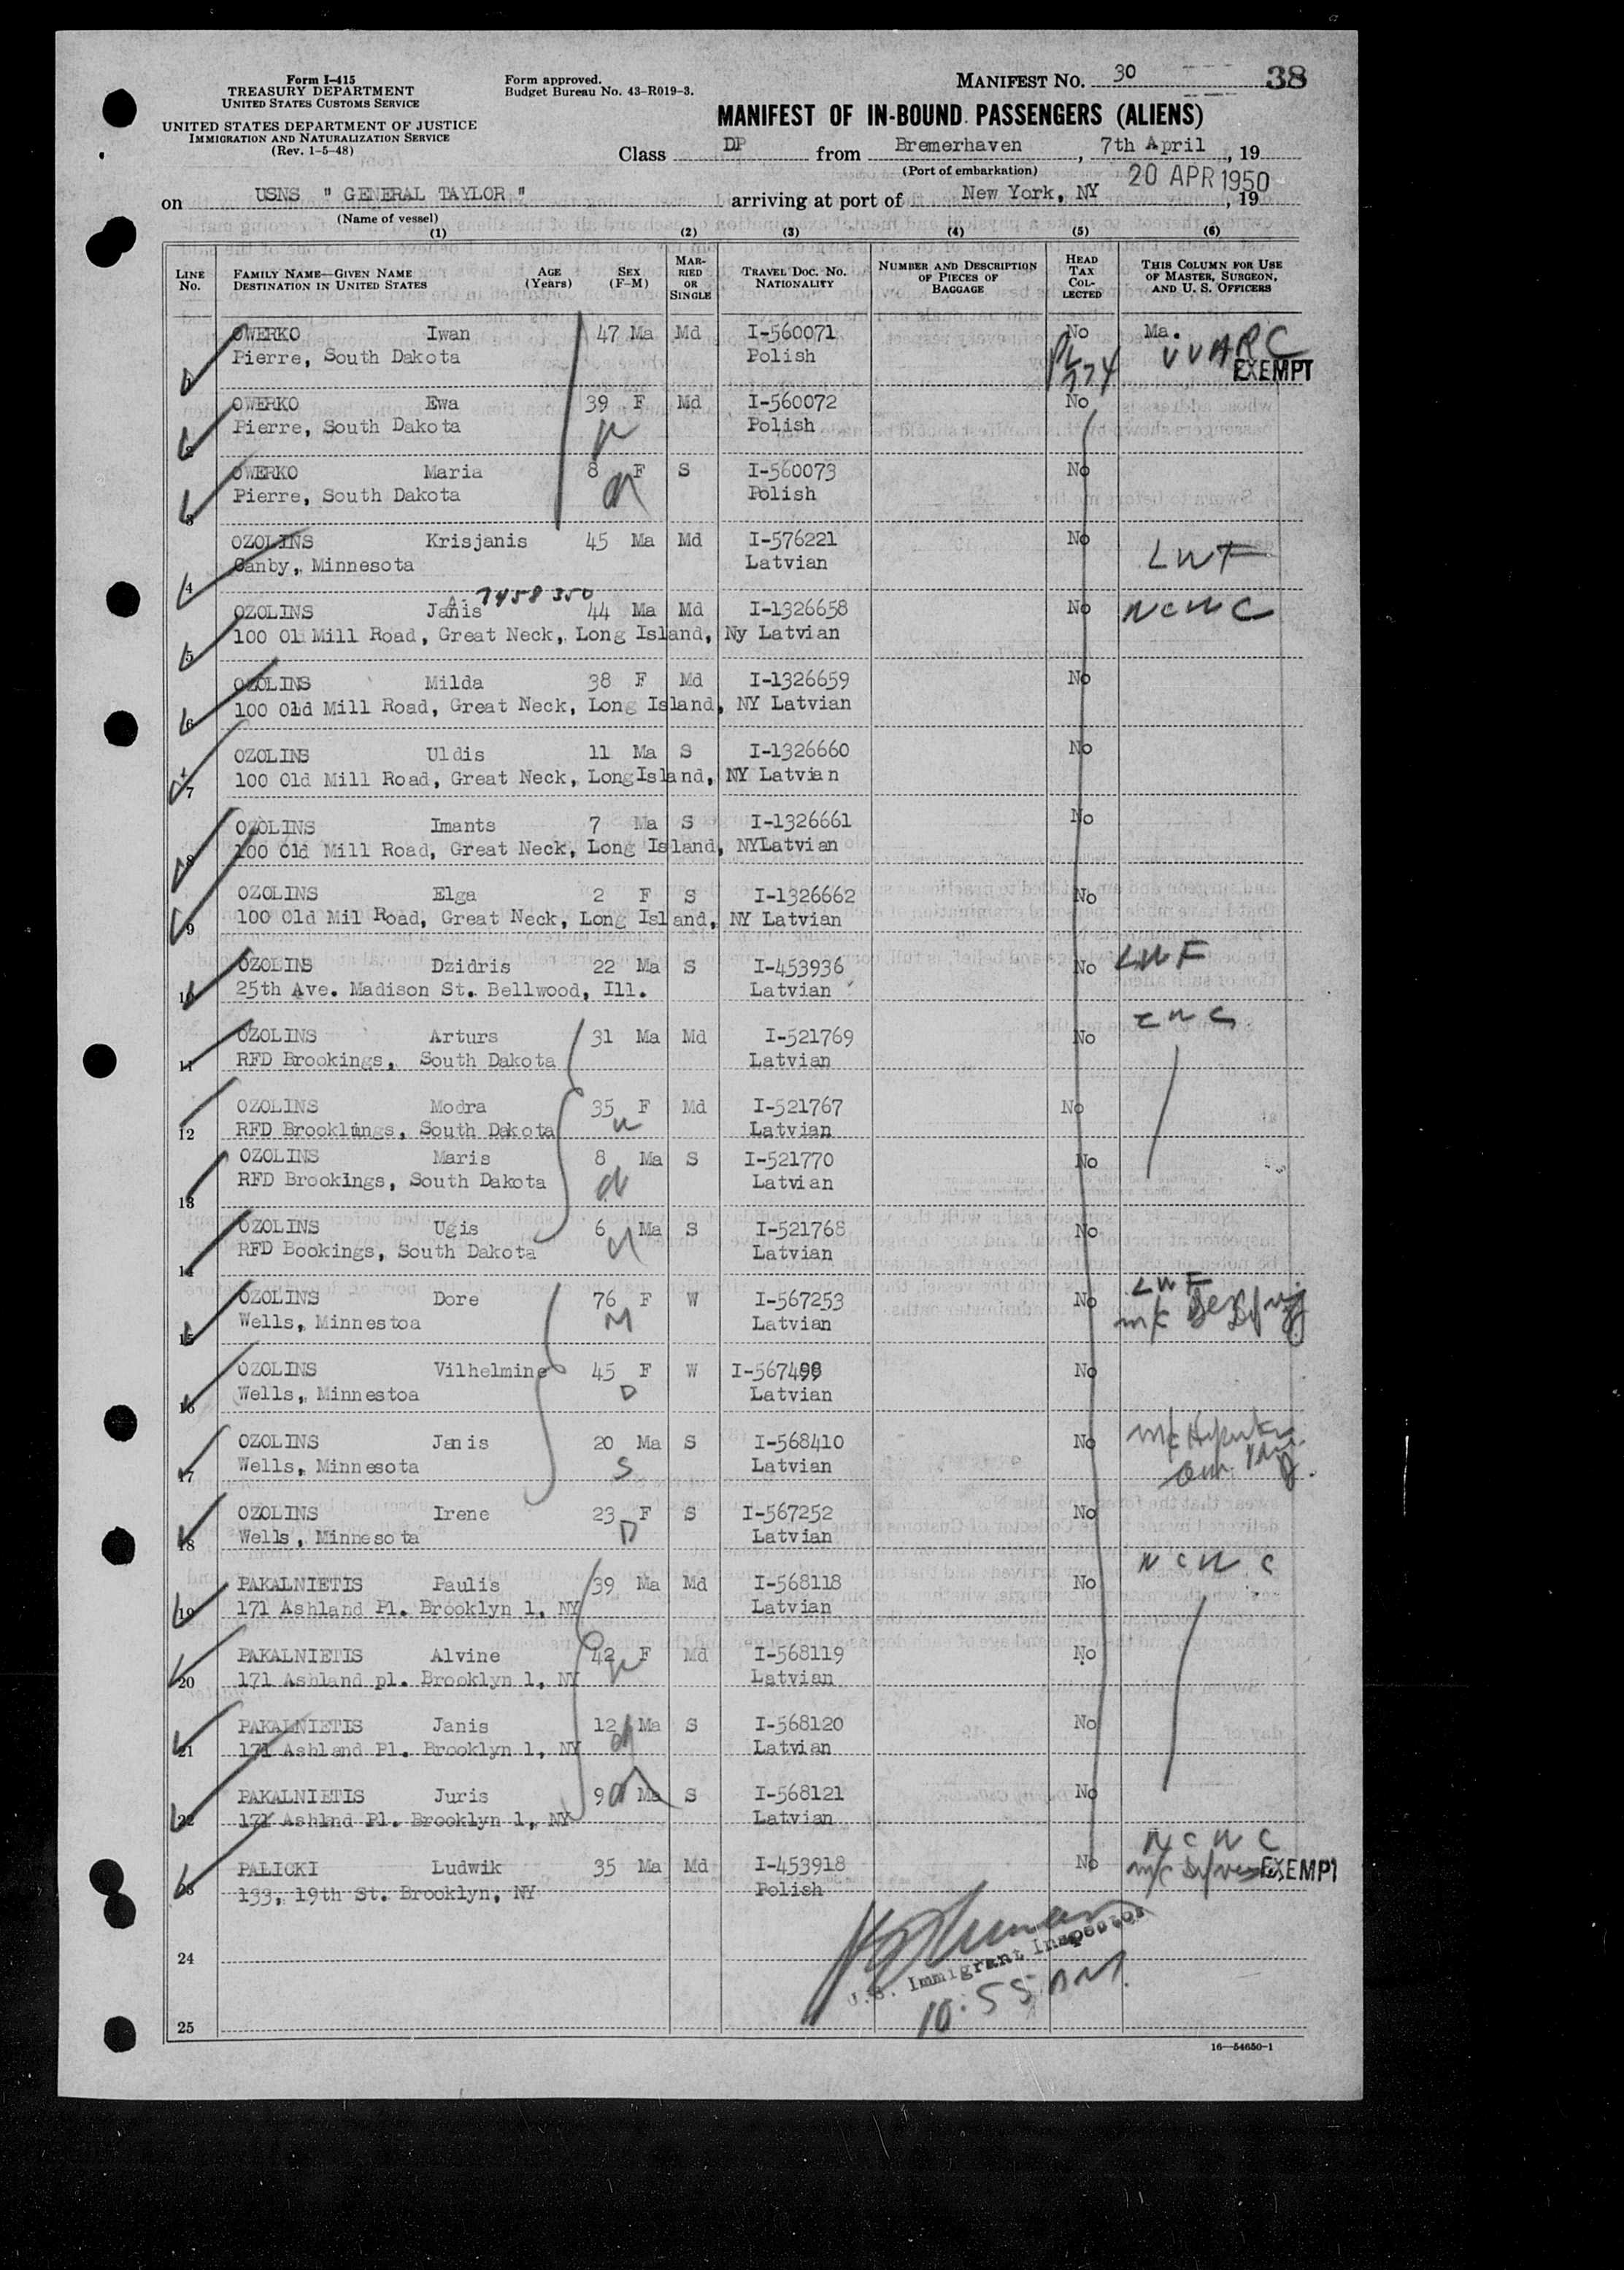 Form I-415
TREASURY DEPARTMENT
UNITED STATES CUSTOMS SERVICE
UNITED STATES DEPARTMENT OF JUSTICE
IMMIGRATION AND NATURALIZATION SERVICE
(Rev. 1-5-48)
Form approved.
Budget Bureau No. 43-R019-3.
MANIFEST NO. 30 38
MANIFEST OF IN-BOUND PASSENGERS (ALIENS)
Class DP from Bremerhaven, 7th April, 19
(Port of embarkation)
20 APR 1950
on USNS " GENERAL TAYLOR " arriving at port of New York, NY, 19
(Name of vessel)
(1) (2) (3) (4) (5) (6)
LINE No. FAMILY NAME—GIVEN NAME DESTINATION IN UNITED STATES AGE (Years) SEX (F-M) MARRIED OR SINGLE TRAVEL DOC. NO. NATIONALITY NUMBER AND DESCRIPTION OF PIECES OF BAGGAGE HEAD TAX COLLECTED THIS COLUMN FOR USE OF MASTER, SURGEON, AND U. S. OFFICERS
1 OWERKO Iwan 47 Ma Md I-560071 No Ma.
Pierre, South Dakota Polish PL 774 VVARC
EXEMPT
2 OWERKO Ewa 39 F Md I-560072 No
Pierre, South Dakota Polish
3 OWERKO Maria 8 F S I-560073 No
Pierre, South Dakota Polish
4 OZOLINS Krisjanis 45 Ma Md I-576221 No LWF
Canby, Minnesota Latvian
A-7458350
5 OZOLINS Janis 44 Ma Md I-1326658 No NCWC
100 Ol Mill Road, Great Neck, Long Island, Ny Latvian
6 OZOLINS Milda 38 F Md I-1326659 No
100 Old Mill Road, Great Neck, Long Island, NY Latvian
7 OZOLINS Uldis 11 Ma S I-1326660 No
100 Old Mill Road, Great Neck, LongIsland, NY Latvian
8 OZOLINS Imants 7 Ma S I-1326661 No
100 Old Mill Road, Great Neck, Long Island, NYLatvian
9 OZOLINS Elga 2 F S I-1326662 No
100 Old Mil Road, Great Neck, Long Island, NY Latvian
10 OZOLINS Dzidris 22 Ma S I-453936 No LWF
25th Ave. Madison St. Bellwood, Ill. Latvian
11 OZOLINS Arturs 31 Ma Md I-521769 No
RFD Brookings, South Dakota Latvian
12 OZOLINS Modra 35 F Md I-521767 No
RFD Brooklings, South Dakota Latvian
13 OZOLINS Maris 8 Ma S I-521770 No
RFD Brookings, South Dakota Latvian
14 OZOLINS Ugis 6 Ma S I-521768 No
RFD Bookings, South Dakota Latvian
15 OZOLINS Dore 76 F W I-567253 No LWF
Wells, Minnestoa M Latvian
16 OZOLINS Vilhelmine 45 F W No
Wells, Minnestoa D Latvian
17 OZOLINS Janis 20 Ma S I-568410 No
Wells, Minnesota S Latvian
18 OZOLINS Irene 23 F S I-567252 No
Wells, Minnesota D Latvian
19 PAKALNIETIS Paulis 39 Ma Md I-568118 No NCWC
171 Ashland Pl. Brooklyn 1, NY Latvian
20 PAKALNIETIS Alvine 42 F Md I-568119 No
171 Ashland pl. Brooklyn 1, NY Latvian
21 PAKALNIETIS Janis 12 Ma S I-568120 No
171 Ashland Pl. Brooklyn 1, NY Latvian
22 PAKALNIETIS Juris 9 Ma S I-568121 No
171 Ashlnd Pl. Brooklyn 1, NY Latvian
23 PALICKI Ludwik 35 Ma Md I-453918 No NCWC
133, 19th St. Brooklyn, NY Polish EXEMPT
24
U.S. Immigrant Inspector
10:55 AM
25
16—54650-1